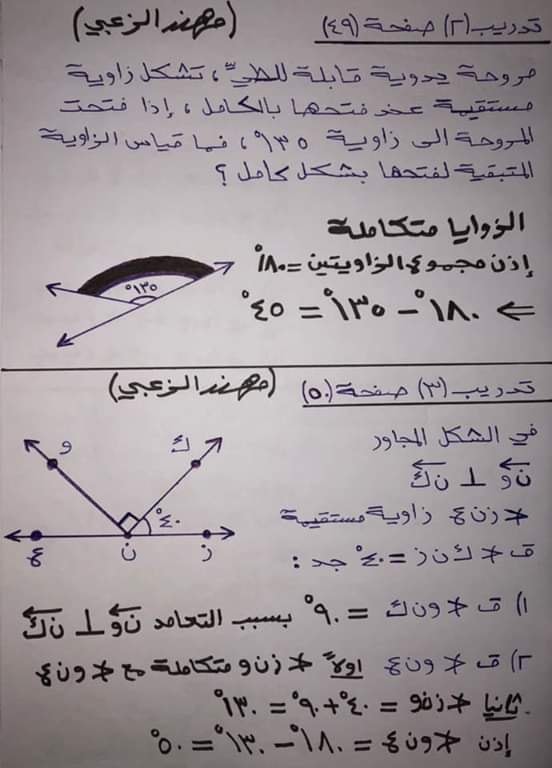 تدريب (٢) صفحة (٤٩) (مهند الزعبي)
مروحة يدوية قابلة للطيّ، تشكل زاوية
مستقيمة عند فتحها بالكامل، إذا فتحت
المروحة الى زاوية ١٣٥°، فما قياس الزاوية
المتبقية لفتحها بشكل كامل؟
الزوايا متكاملة
إذن مجموع الزاويتين = ١٨٠°
⇐ ١٨٠° − ١٣٥° = ٤٥°
١٣٥°
تدريب (٣) صفحة (٥٠) (مهند الزعبي)
في الشكل المجاور
ن و ⊥ ن ك
∢ ز ن ع زاوية مستقيمة
ق ∢ ك ن ز = ٤٠° جد :
و
ك
٤٠°
ع
ن
ز
١) ق ∢ و ن ك = ٩٠° بسبب التعامد ن و ⊥ ن ك
٢) ق ∢ و ن ع اولاً ∢ ز ن و متكاملة مع ∢ و ن ع
ثانيا ∢ ز ن و = ٤٠° + ٩٠° = ١٣٠°
إذن ∢ و ن ع = ١٨٠° − ١٣٠° = ٥٠°